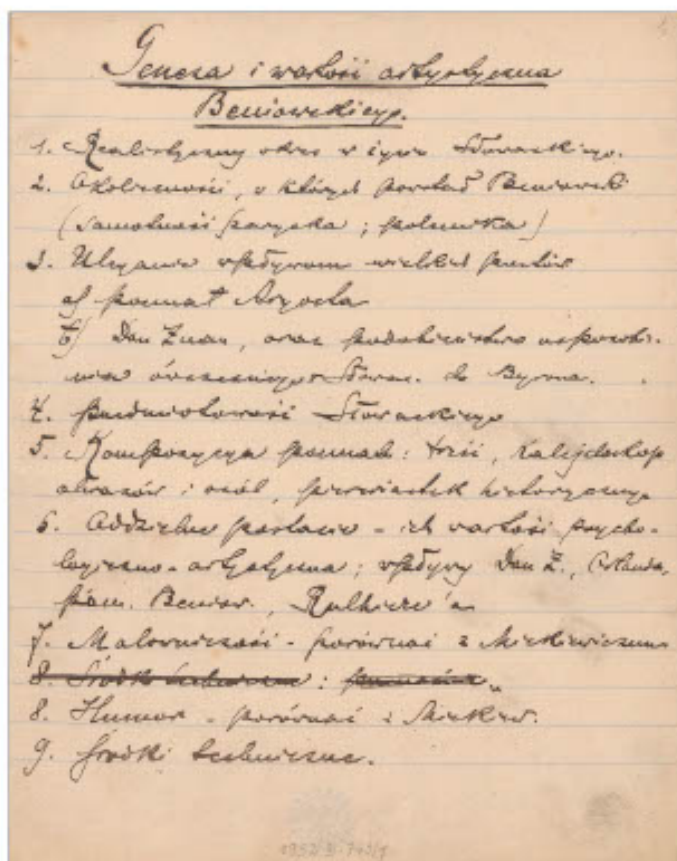 Geneza i wartość artystyczna
Beniowskiego.
1. Realistyczny okres w życiu Słowackiego.
2. Okoliczności, w których powstał Beniowski
(samotność paryska; polemika)
3. Uleganie wpływom wielkich poetów
a) poemat Aryosta
b) Don Żuan, oraz podobieństwo usposobie-
nia ówczesnego Słowac. do Byrona.
4. Przedmiotowość Słowackiego
5. Kompozycya poematu: treść, kalejdoskop
obrazów i osób, pierwiastek historyczny.
6. Oddzielne postacie - ich wartość psycho-
logiczno-artystyczna; wpływy Don Ż., Orlanda,
pam. Beniow., Rulhiere'a
7. Malowniczość - porównać z Mickiewiczem
8. Środki techniczne:
8. Humor - porównać z Mickiew.
9. Środki techniczne.